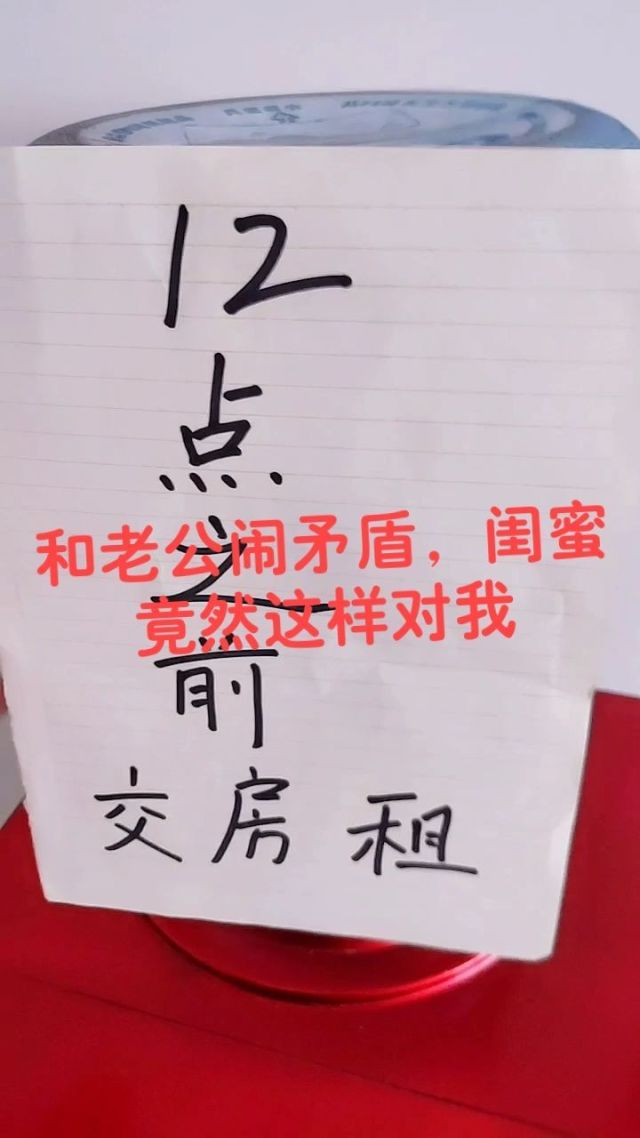 12
点
之
前
交房租
和老公闹矛盾，闺蜜
竟然这样对我